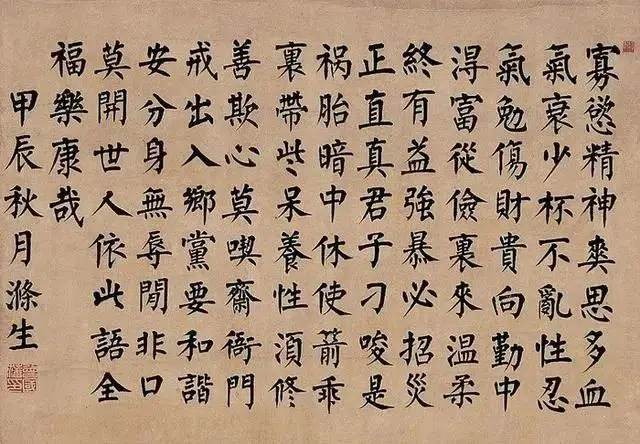 寡慾精神爽思多血
氣衰少杯不亂性忍
氣勉傷財貴向勤中
得富從儉裏來溫柔
終有益強暴必招災
正直真君子刁唆是
祸胎暗中休使箭乖
裏帶些呆養性須修
善欺心莫喫齋衙門
戒出入鄉黨要和諧
安分身無辱閒非口
莫開世人依此語全
福樂康哉
甲辰秋月滌生